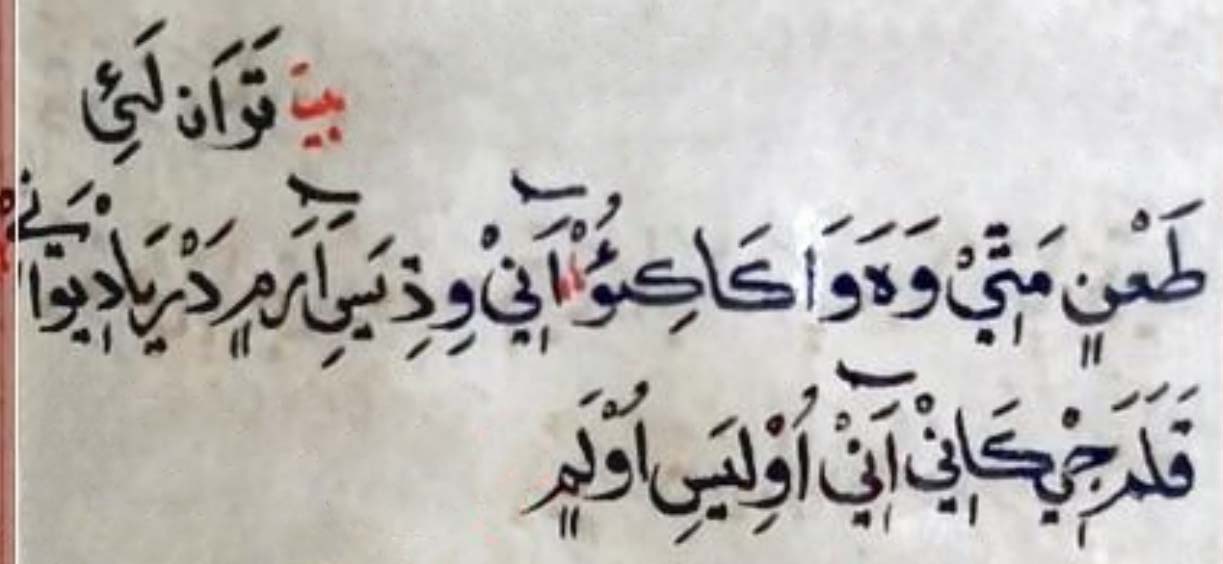 بيتَ تَوَان لَئِ
طَعْنٍ مَتِيْ وَهَ وَا كَاكِئُوْ آنِيْ وِذِيَسِ آرَمٍ دَرْيَادِيْوَا
قَلَمَ جِيْ كَانِيْ آنِيْ اُوْلِيَسِ اُوْلَمٍ